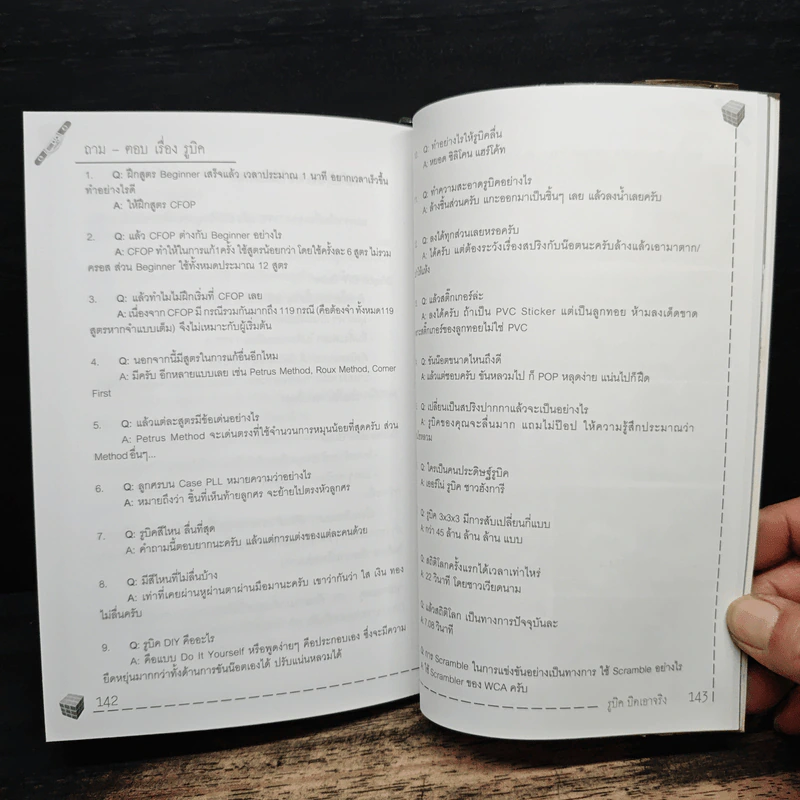 ถาม - ตอบ เรื่อง รูบิค
1. Q: ฝึกสูตร Beginner เสร็จแล้ว เวลาประมาณ 1 นาที อยากเวลาเร็วขึ้น
ทำอย่างไรดี
A: ให้ฝึกสูตร CFOP
2. Q: แล้ว CFOP ต่างกับ Beginner อย่างไร
A: CFOP ทำให้ในการแก้1ครั้ง ใช้สูตรน้อยกว่า โดยใช้ครั้งละ 6 สูตร ไม่รวม
ครอส ส่วน Beginner ใช้ทั้งหมดประมาณ 12 สูตร
3. Q: แล้วทำไมไม่ฝึกเริ่มที่ CFOP เลย
A: เนื่องจาก CFOP มี กรณีรวมกันมากถึง 119 กรณี (คือต้องจำ ทั้งหมด119
สูตรหากจำแบบเต็ม) จึงไม่เหมาะกับผู้เริ่มต้น
4. Q: นอกจากนี้มีสูตรในการแก้อื่นอีกไหม
A: มีครับ อีกหลายแบบเลย เช่น Petrus Method, Roux Method, Corner
First
5. Q: แล้วแต่ละสูตรมีข้อเด่นอย่างไร
A: Petrus Method จะเด่นตรงที่ใช้จำนวนการหมุนน้อยที่สุดครับ ส่วน
Method อื่นๆ...
6. Q: ลูกศรบน Case PLL หมายความว่าอย่างไร
A: หมายถึงว่า ชิ้นที่เห็นท้ายลูกศร จะย้ายไปตรงหัวลูกศร
7. Q: รูบิคสีไหน ลื่นที่สุด
A: คำถามนี้ตอบยากนะครับ แล้วแต่การแต่งของแต่ละคนด้วย
8. Q: มีสีไหนที่ไม่ลื่นบ้าง
A: เท่าที่เคยผ่านหูผ่านตาผ่านมือมานะครับ เขาว่ากันว่า ใส เงิน ทอง
ไม่ลื่นครับ
9. Q: รูบิค DIY คืออะไร
A: คือแบบ Do It Yourself หรือพูดง่ายๆ คือประกอบเอง ซึ่งจะมีความ
ยืดหยุ่นมากกว่าทั้งด้านการขันน๊อตเองได้ ปรับแน่นหลวมได้
142
Q: ทำอย่างไรให้รูบิคลื่น
A: หยอด ซิลิโคน แฮร์โค้ท
Q: ทำความสะอาดรูบิคอย่างไร
A: ล้างชิ้นส่วนครับ แกะออกมาเป็นชิ้นๆ เลย แล้วลงน้ำเลยครับ
Q: ลงได้ทุกส่วนเลยหรอครับ
A: ได้ครับ แต่ต้องระวังเรื่องสปริงกับน๊อตนะครับล้างแล้วเอามาตาก/
Q: แล้วสติ๊กเกอร์ล่ะ
A: ลงได้ครับ ถ้าเป็น PVC Sticker แต่เป็นลูกทอย ห้ามลงเด็ดขาด
สติ๊กเกอร์ของลูกทอยไม่ใช่ PVC
Q: ขันน๊อตขนาดไหนถึงดี
A: แล้วแต่ชอบครับ ขันหลวมไป ก็ POP หลุดง่าย แน่นไปก็ฝืด
Q: เปลี่ยนเป็นสปริงปากกาแล้วจะเป็นอย่างไร
A: รูบิคของคุณจะลื่นมาก แถมไม่ป๊อป ให้ความรู้สึกประมาณว่า
Q: ใครเป็นคนประดิษฐ์รูบิค
A: เออร์โน่ รูบิค ชาวฮังการี
Q: รูบิค 3x3x3 มีการสับเปลี่ยนกี่แบบ
A: กว่า 45 ล้าน ล้าน ล้าน แบบ
Q: สถิติโลกครั้งแรกได้เวลาเท่าไหร่
A: 22 วินาที โดยชาวเวียดนาม
Q: แล้วสถิติโลก เป็นทางการปัจจุบันละ
A: 7.08 วินาที
Q: การ Scramble ในการแข่งขันอย่างเป็นทางการ ใช้ Scramble อย่างไร
A: ใช้ Scrambler ของ WCA ครับ
รูบิค บิคเอาจริง 143